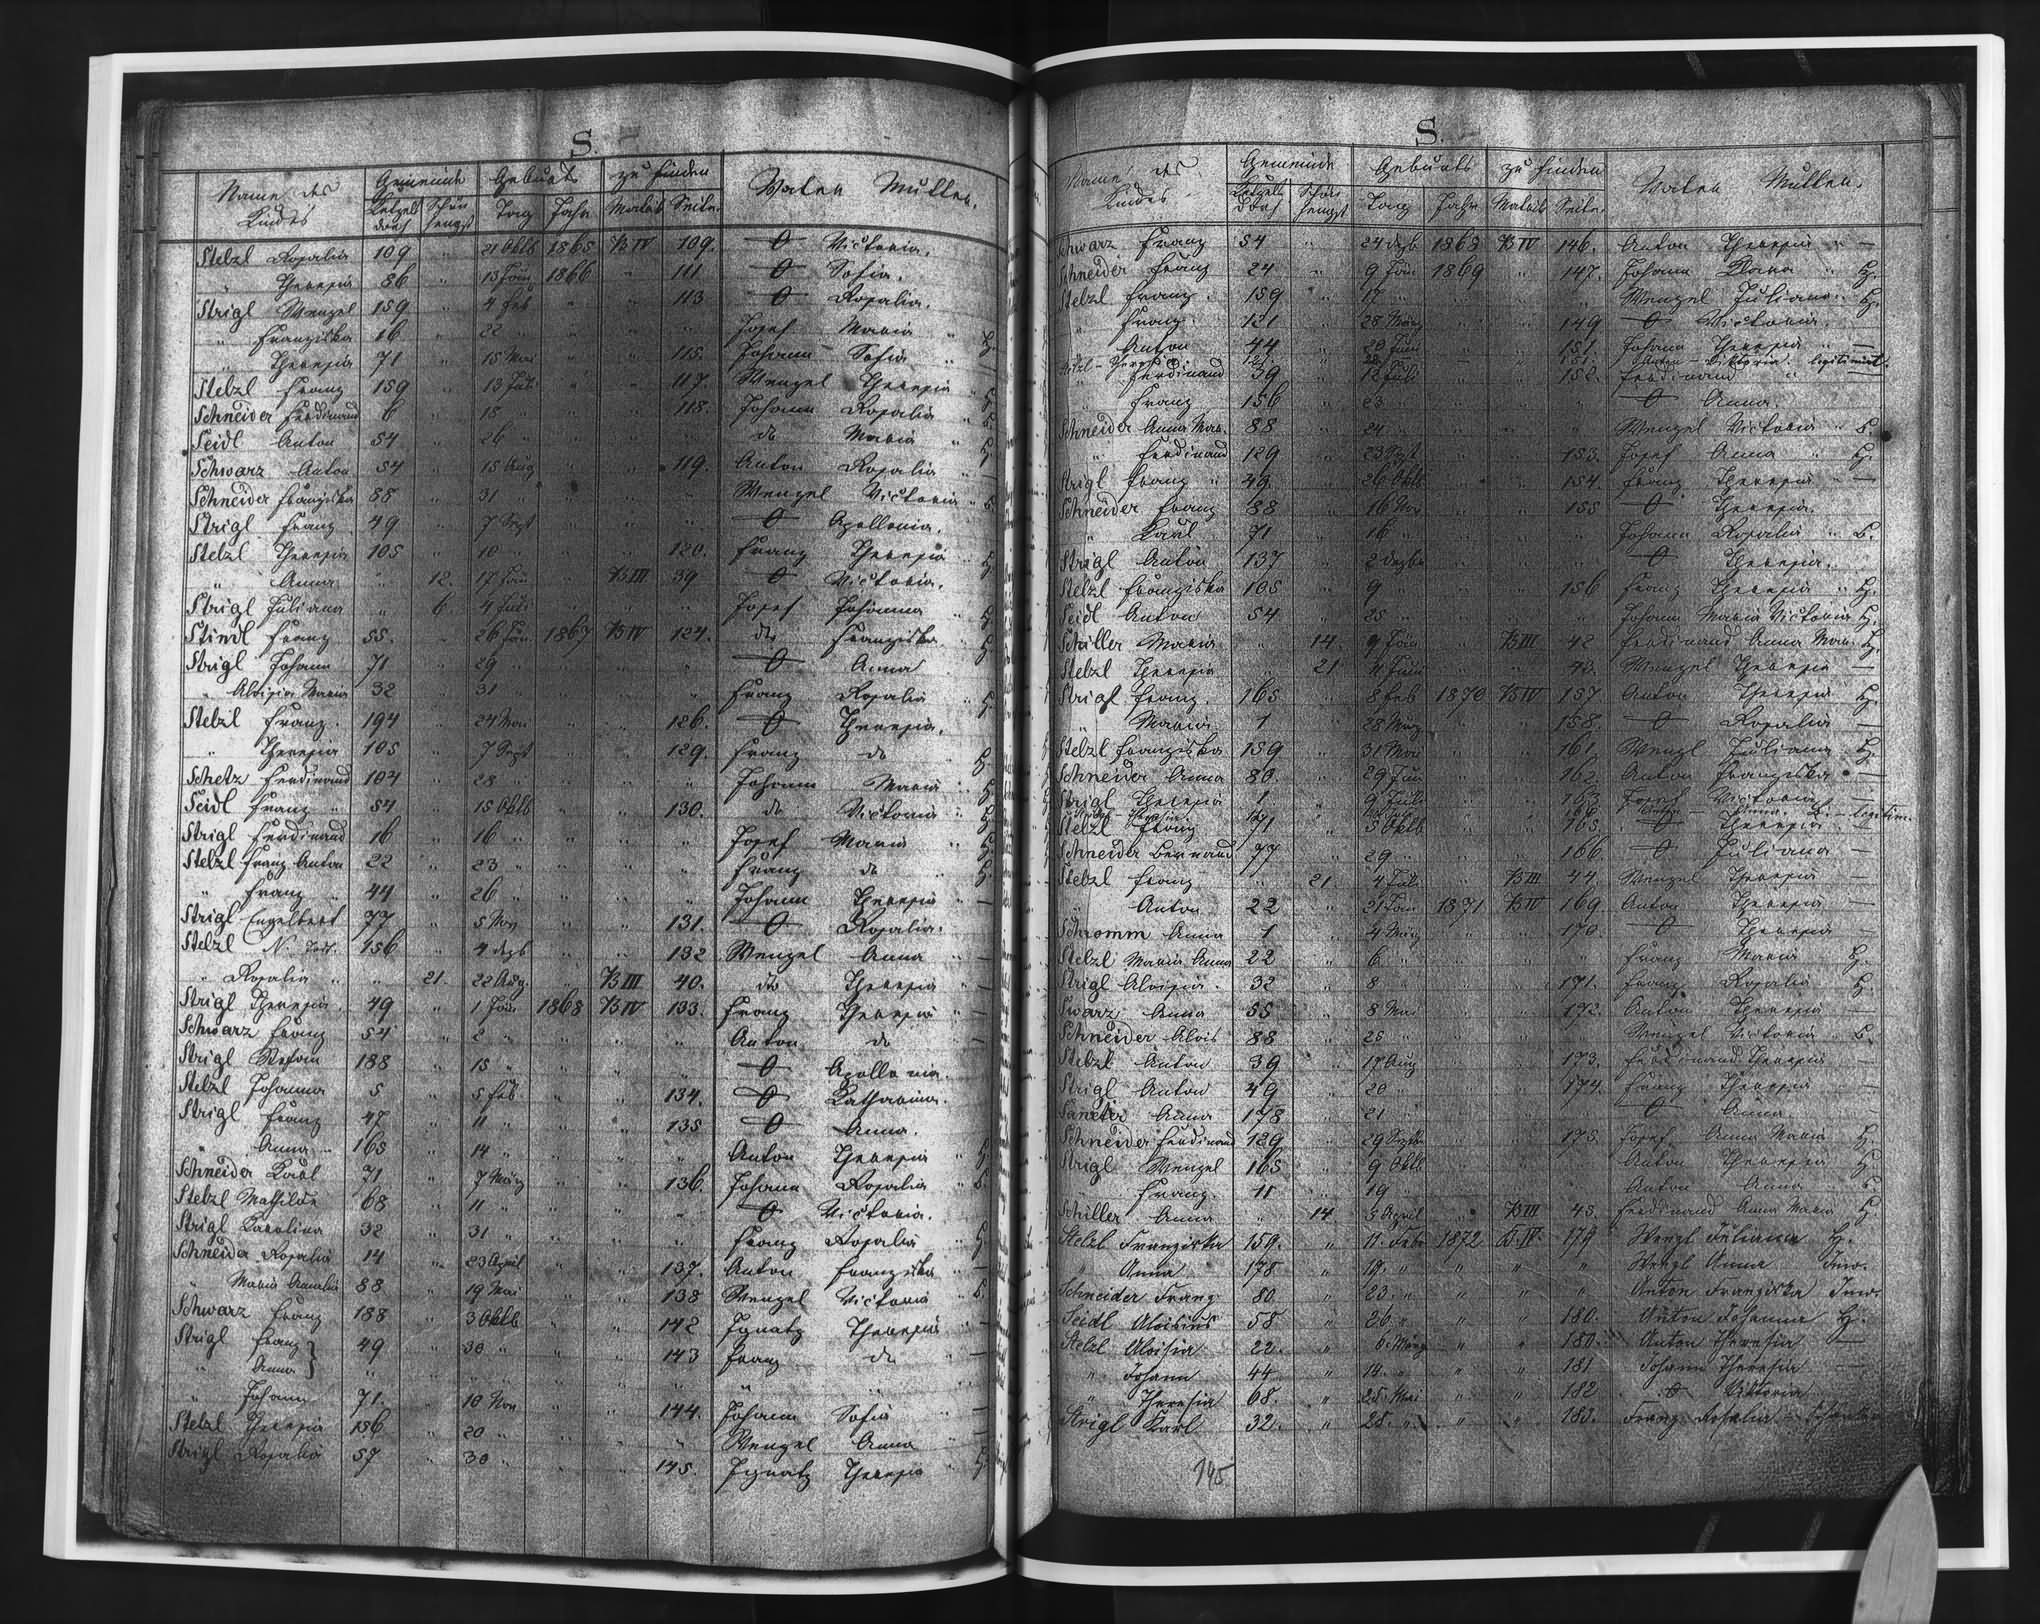 S.
Name des Kindes Gemeinde Ketzels dorf Schön hengst Geburts Tag Jahr zu finden Matrik Seite. Vater Mutter.
Stelzl Rosalia 109 " 21 Oktb 1865 B IV 109. O Victoria.
" Theresia 86 " 13 Jän 1866 " 111. O Sofia.
Strigl Wenzel 159 " 4 Feb " " 113 O Rosalia.
" Franziska 16 " 22 " " " " Josef Maria " H.
" Theresia 71 " 15 Mai " " 115. Johann Sofia " —
Stelzl Franz 159 " 13 Juli " " 117. Wenzel Theresia " H
Schneider Ferdinand 6 " 18 " " " 118. Johann Rosalia "
Seidl Anton 54 " 26 " " " " do Maria " H
Schwarz Anton 54 " 15 Aug " " 119. Anton Rosalia " —
Schneider Franziska 88 " 31 " " " " Wenzel Victoria "
Strigl Franz 49 " 7 Sept " " " O Apollonia.
Stelzl Theresia 105 " 10 " " " 120. Franz Theresia " H
" Anna " 12. 17 Jän " B III 39 O Victoria.
Strigl Juliana " 6 4 Juli " " " Josef Johanna " H
Stindl Franz 55. " 26 Jän. 1867 B IV 124. do Franziska " H
Strigl Johann 71 " 29 " " " " O Anna
" Aloisia Maria 32 " 31 " " " " Franz Rosalia " H
Stelzl Franz. 194 " 24 Mai " " 126. O Theresia.
" Theresia 105 " 7 Sept " " 129. Franz do " H
Schetz Ferdinand 104 " 28 " " " " Johann Maria " H
Seidl Franz " 54 " 15 Oktb " " 130. do Victoria " H
Strigl Ferdinand 16 " 16 " " " " Josef Maria " H
Stelzl Franz Anton 22 " 23 " " " " Franz do " H
" Franz " 44 " 26 " " " " Johann Theresia " —
Strigl Engelbert 77 " 5 Nov " " 131. O Rosalia.
Stelzl N. todt. 156 " 4 dezb " " 132 Wenzel Anna " —
" Rosalia " " 21. 22 Aug. " B III 40. do Theresia " —
Strigl Theresia 49 " 1 Jän 1868 B IV 133. Franz Theresia " —
Schwarz Franz 54 " 2 " " " " Anton do " —
Strigl Stefan 188 " 15 " " " " O Apollonia.
Stelzl Johanna 5 " 5 Feb. " " 134. O Katharina.
Strigl Franz 47 " 11 " " " 135 O Anna.
" Anna " 165 " 14 " " " " Anton Theresia " H
Schneider Karl 71 " 7 März " " 136. Johann Rosalia "
Stelzl Mathilde 68 " 11 " " " " O Victoria.
Strigl Karolina 32 " 31 " " " " Franz Rosalia " H
Schneider Rosalia 14 " 23 April " " 137. Anton Franziska " —
" Maria Amalia 88 " 19 Mai " " 138 Wenzel Victoria "
Schwarz Franz 188 " 3 Oktb " " 142 Ignatz Theresia " —
Strigl Franz } 49 " 30 " " " 143 Franz do " —
" Anna } " " " " " " " "
" Johann 71. " 10 Nov " " 144. Johann Sofia " —
Stelzl Theresia 156 " 20 " " " " Wenzel Anna " —
Strigl Rosalia 57 " 30 " " " 145. Ignatz Theresia " H
S.
Name des Kindes Gemeinde Ketzels dorf Schön hengst Geburts Tag Jahr zu finden Matrik Seite. Vater Mutter.
Schwarz Franz 54 " 24 dezb 1868 B IV 146. Anton Theresia " —
Schneider Franz 24 " 9 Jän 1869 " 147. Johann Klara " H.
Stelzl Franz. 159 " 17 " " " " Wenzel Juliana " H.
" Franz. 121 " 28 März " " 149 O Victoria.
" Anton 44 " 20 Juni " " 151. Johann Theresia " —
Viktoria legitimirt.
" Ferdinand 39 " 12 Juli " " 152. Ferdinand " —
" Franz 156 " 23 " " " " O Anna.
Schneider Anna Mar. 88 " 24 " " " " Wenzel Victoria "
" Ferdinand 129 " 23 Sept " " 153. Josef Anna " H.
Strigl Franz " 49. " 26 Oktb " " 154. Franz Theresia " —
Schneider Franz 88 " 16 Nov " " 155 O Theresia.
" Karl 71 " 16 " " " " Johann Rosalia "
Strigl Anton 137 " 2 dezbr " " " O Theresia.
Stelzl Franziska 105 " 9 " " " 156 Franz Theresia " H.
Seidl Anton 54 " 25 " " " " Johann Maria Victoria H.
Schiller Maria " 14. 9 Jän " B III 42 Ferdinand Anna Mar. H.
Stelzl Theresia " 21. 4 Juni " " 43. Wenzel Theresia —
Strigl Franz. 165 " 8 Feb 1870 B IV 157. Anton Theresia H.
" Maria 1 " 28 März " " 158. O Rosalia —
Stelzl Franziska 159 " 31 Mai " " 161. Wenzl Juliana H.
Schneider Anna 80. " 29 Juni " " 162. Anton Franziska —
Strigl Theresia 1 " 9 Juli " " 163 Josef Victoria —
legitim.
Stelzl Franz 71 " 5 Oktb " " 165. O Theresia —
Schneider Bernard 77 " 29 " " " 166. O Juliana —
Stelzl Franz " 21. 4 Juli " B III 44. Wenzel Theresia —
" Anton 22 " 21 Jän 1871 B IV 169 Anton Theresia —
Schromm Anna 1 " 4 März " " 170. O Theresia —
Stelzl Maria Anna 22 " 6 " " " " Franz Maria H.
Strigl Aloisia. 32 " 8 " " " 171. Franz Rosalia H.
Swarz Anna 55 " 8 Mai " " 172. Anton Theresia —
Schneider Alois 88 " 25 " " " " Wenzel Victoria
Stelzl Anton 39 " 17 Aug " " 173. Ferdinand Theresia —
Strigl Anton 49 " 20 " " " 174. Franz Theresia —
Sancter Anna 178 " 21 " " " " O Anna
Schneider Ferdinand 129 " 29 Septbr " " 175. Josef Anna Maria H.
Strigl Wenzel 165 " 9 Oktb " " " Anton Theresia H
" Franz. 11 " 19 " " " " Anton Anna
Schiller Anna " 14 5 April " B III 45. Ferdinand Anna Maria H.
Stelzl Franziska 159. " 11. Febr 1872 B. IV. 179 Wenzl Juliana H.
" Anna 178 " 19. " " " " Wenzl Anna Inw.
Schneider Franz 80. " 23. " " " " Anton Franziska Inw.
Seidl Aloisius 58 " 26. " " " 180. Anton Johanna H.
Stelzl Aloisia 22. " 6. März " " 180. Anton Theresia —
" Johann 44 " 14. " " " 181 Johann Theresia —
" Theresia 68. " 25. Mai " " 182 O Viktoria
Strigl Karl 32. " 28. " " " 183. Franz Rosalia
195